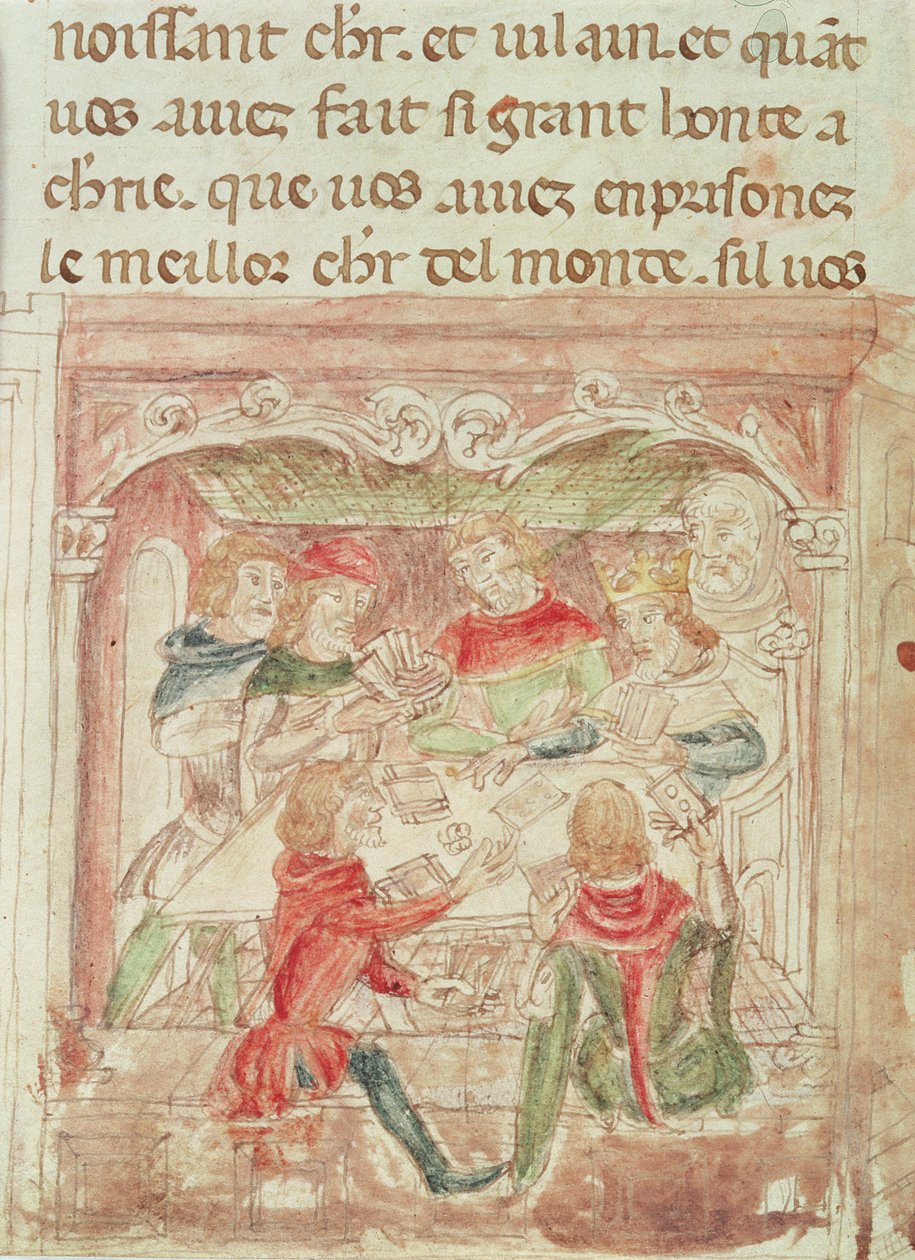 noissant chr̄. et uilain. et quāt
uos auiez fait si grant honte a
chrīe. que uos auiez enprisonez
le meillor chr̄ del monde. sil uos